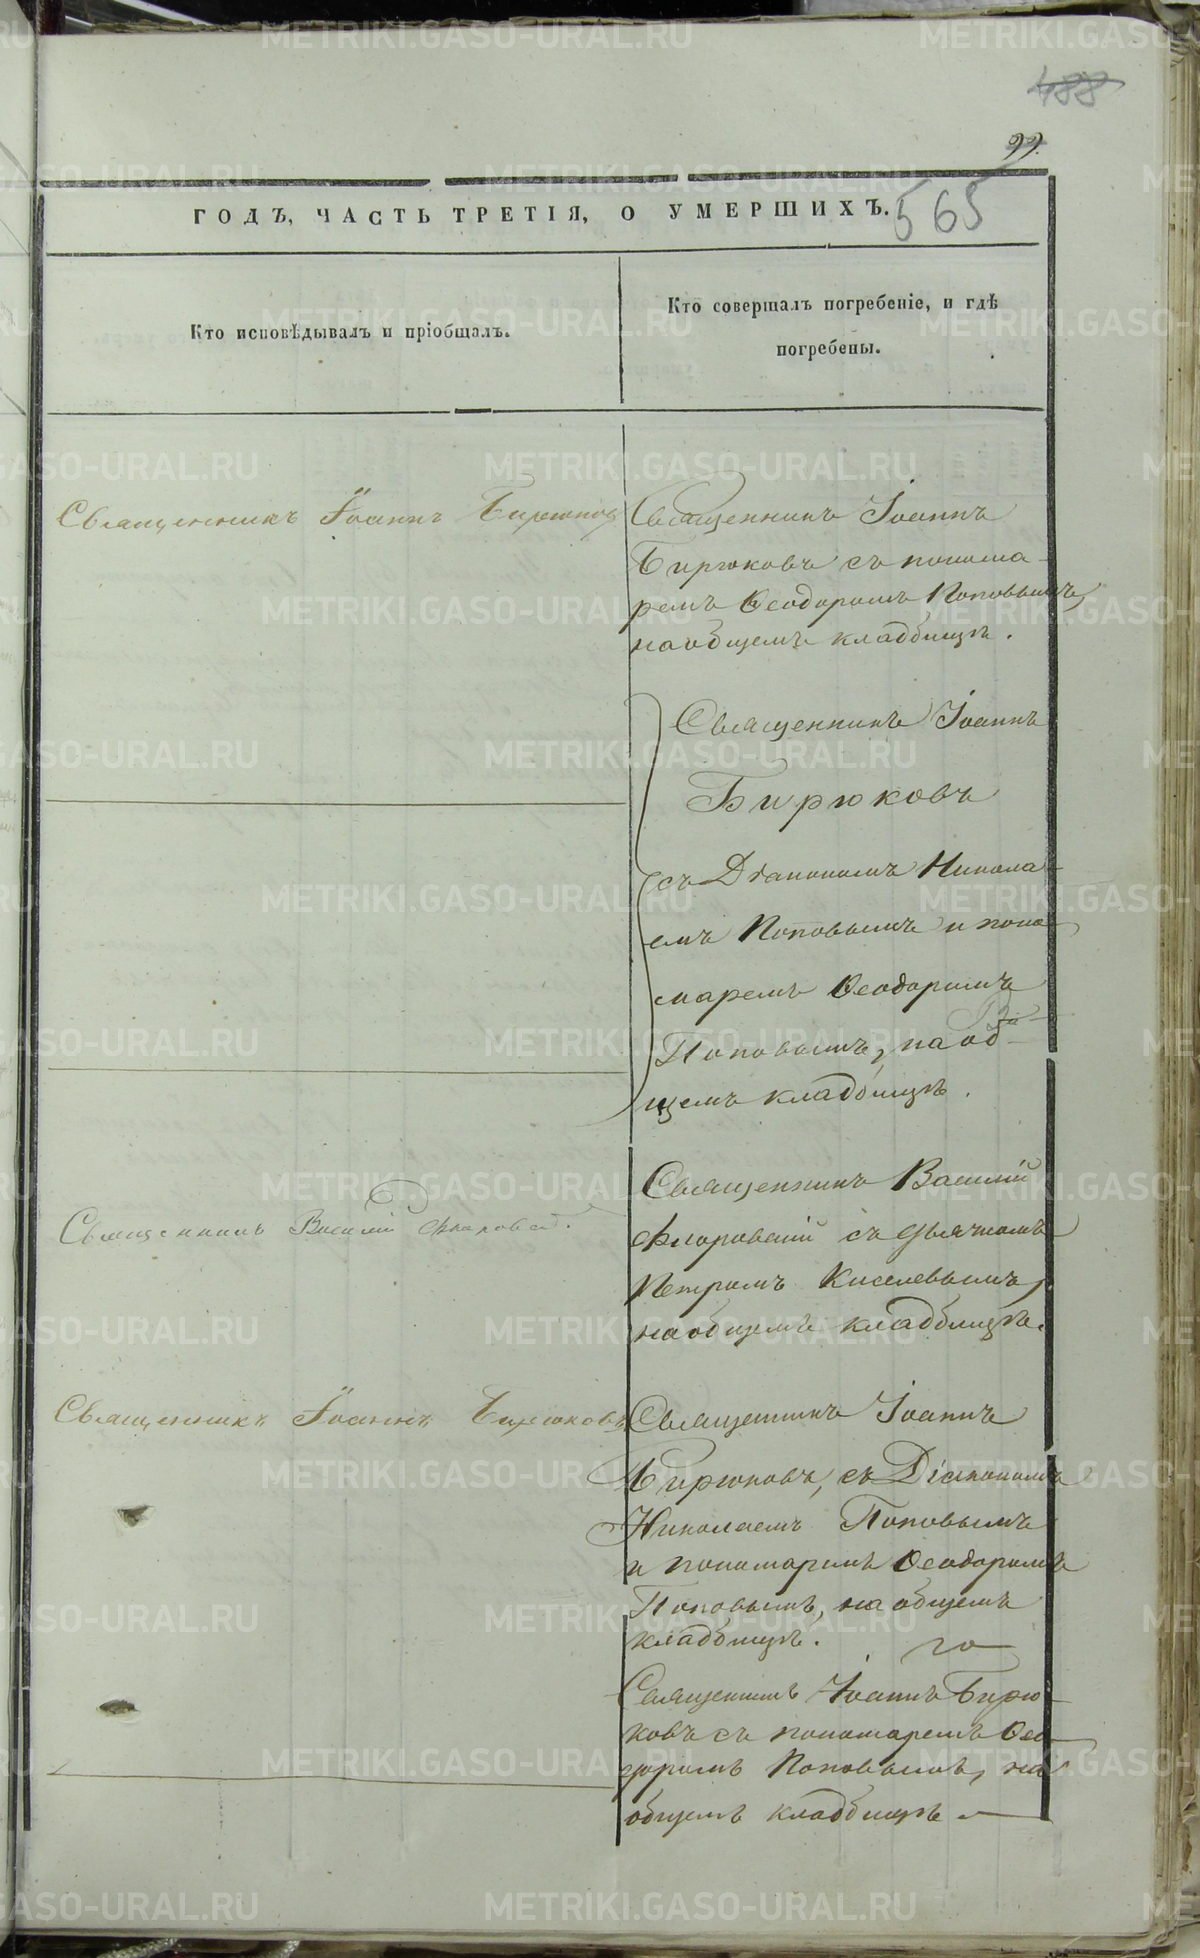 488
99.
565
ГОДЪ, ЧАСТЬ ТРЕТІЯ, О УМЕРШИХЪ.
Кто исповѣдывалъ и пріобщалъ.
Кто совершалъ погребеніе, и гдѣ
погребены.
Священникъ Іоаннъ Бирюковъ
Священникъ Іоаннъ
Бирюковъ съ понома-
ремъ Ѳеодоромъ Поповымъ,
на общемъ кладбищѣ.
Священникъ Іоаннъ
Бирюковъ
съ Діакономъ Никола-
емъ Поповымъ и поно-
маремъ Ѳеодоромъ
Поповымъ, на об-
щемъ кладбищѣ.
Священникъ Василій Флоровск.
Священникъ Василій
Флоровскій съ дьячкомъ
Петромъ Киселевымъ,
на общемъ кладбищѣ.
Священникъ Іоаннъ Бирюковъ
Священникъ Іоаннъ
Бирюковъ, съ Діакономъ
Николаемъ Поповымъ
и пономаремъ Ѳеодоромъ
Поповымъ, на общемъ
кладбищѣ.
Священникъ Іоаннъ Бирю-
ковъ съ пономаремъ Ѳео-
доромъ Поповымъ, на
общемъ кладбищѣ
METRIKI.GASO-URAL.RU